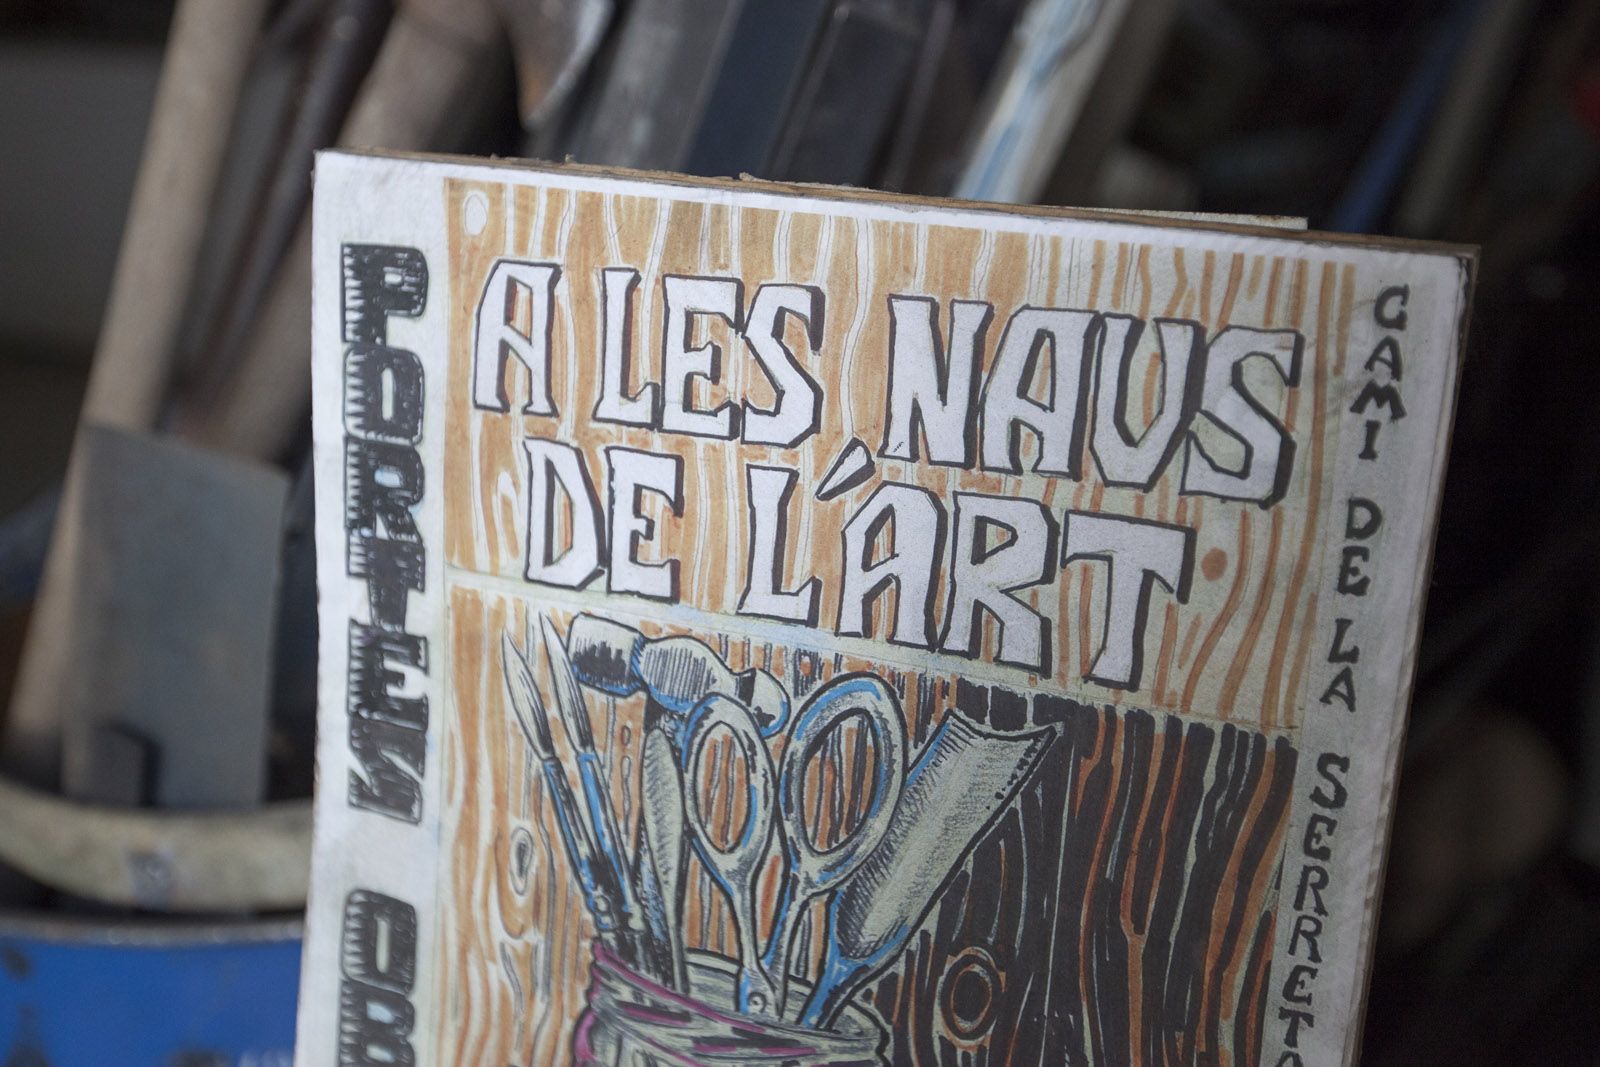 A LES NAUS
DE L'ART
PORTES
CAMI DE LA SERRETA